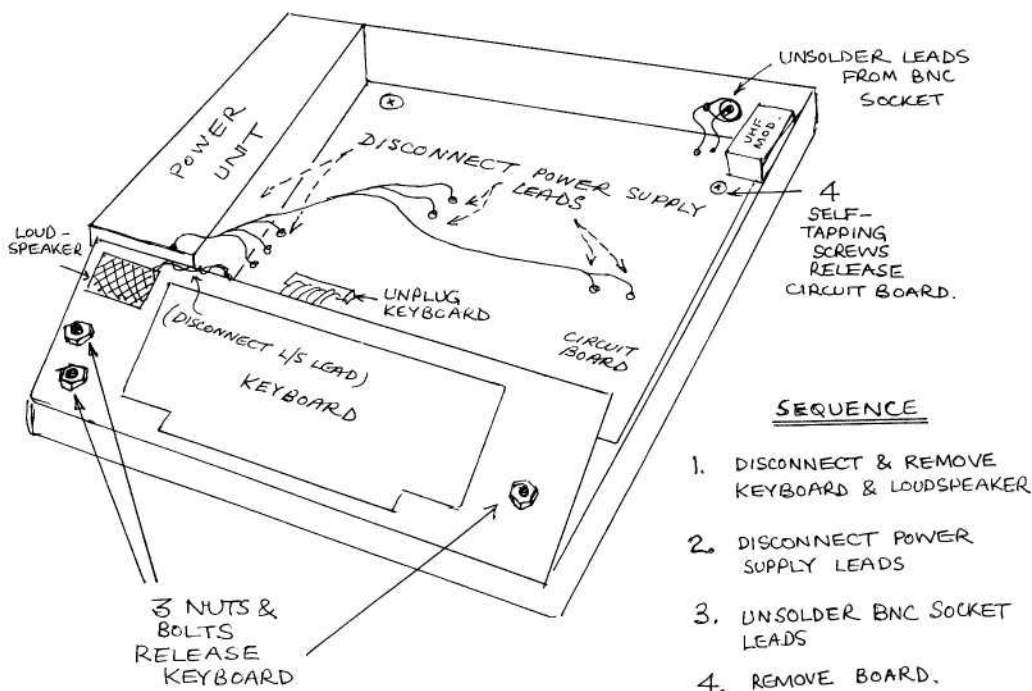 UNSOLDER LEADS
FROM BNC
SOCKET
UHF
MOD.
POWER
UNIT
DISCONNECT POWER SUPPLY
LEADS
4
SELF-
TAPPING
SCREWS
RELEASE
CIRCUIT BOARD.
LOUD-
SPEAKER
UNPLUG
KEYBOARD
(DISCONNECT L/S LEAD)
KEYBOARD
CIRCUIT
BOARD
3 NUTS &
BOLTS
RELEASE
KEYBOARD
SEQUENCE
1. DISCONNECT & REMOVE
KEYBOARD & LOUDSPEAKER
2. DISCONNECT POWER
SUPPLY LEADS
3. UNSOLDER BNC SOCKET
LEADS
4. REMOVE BOARD.